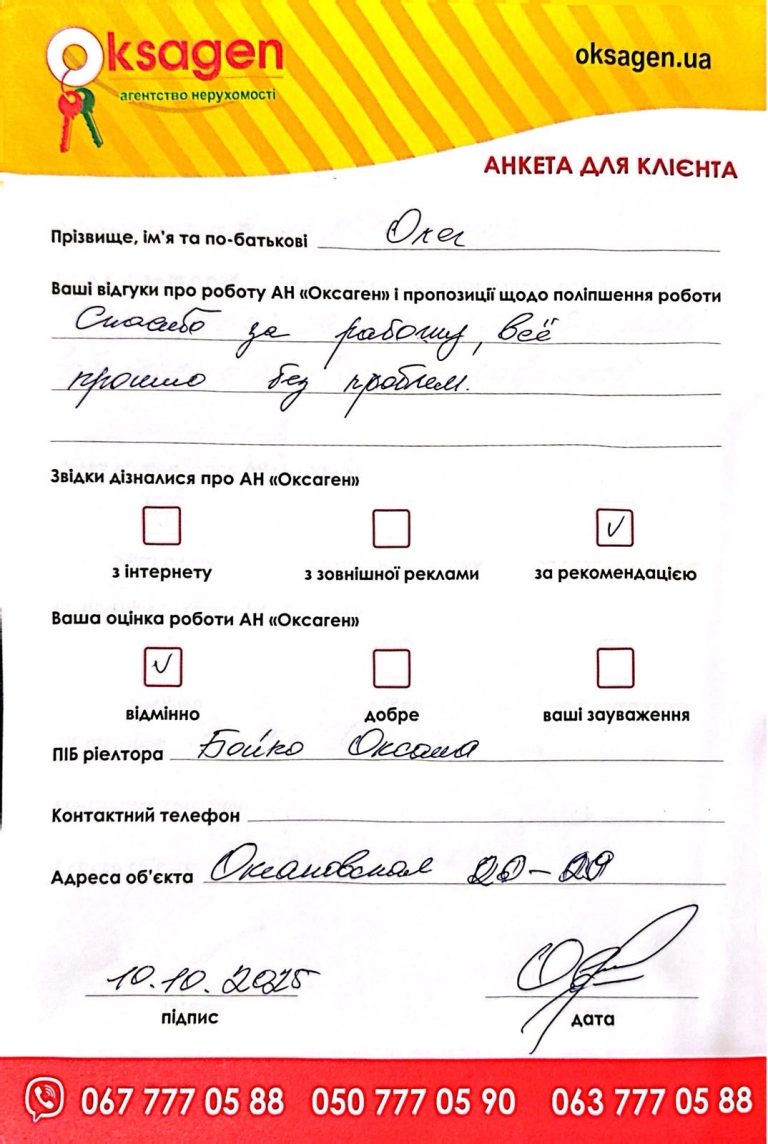 Oksagen
агентство нерухомості
oksagen.ua
АНКЕТА ДЛЯ КЛІЄНТА
Прізвище, ім'я та по-батькові Олег
Ваші відгуки про роботу АН «Оксаген» і пропозиції щодо поліпшення роботи
Спасибо за работу, всё
прошло без проблем.
Звідки дізналися про АН «Оксаген»
з інтернету з зовнішної реклами за рекомендацією
Ваша оцінка роботи АН «Оксаген»
відмінно добре ваші зауваження
ПІБ ріелтора Бойко Оксана
Контактний телефон
Адреса об'єкта Океановская
10.10.2025
підпис дата
067 777 05 88 050 777 05 90 063 777 05 88